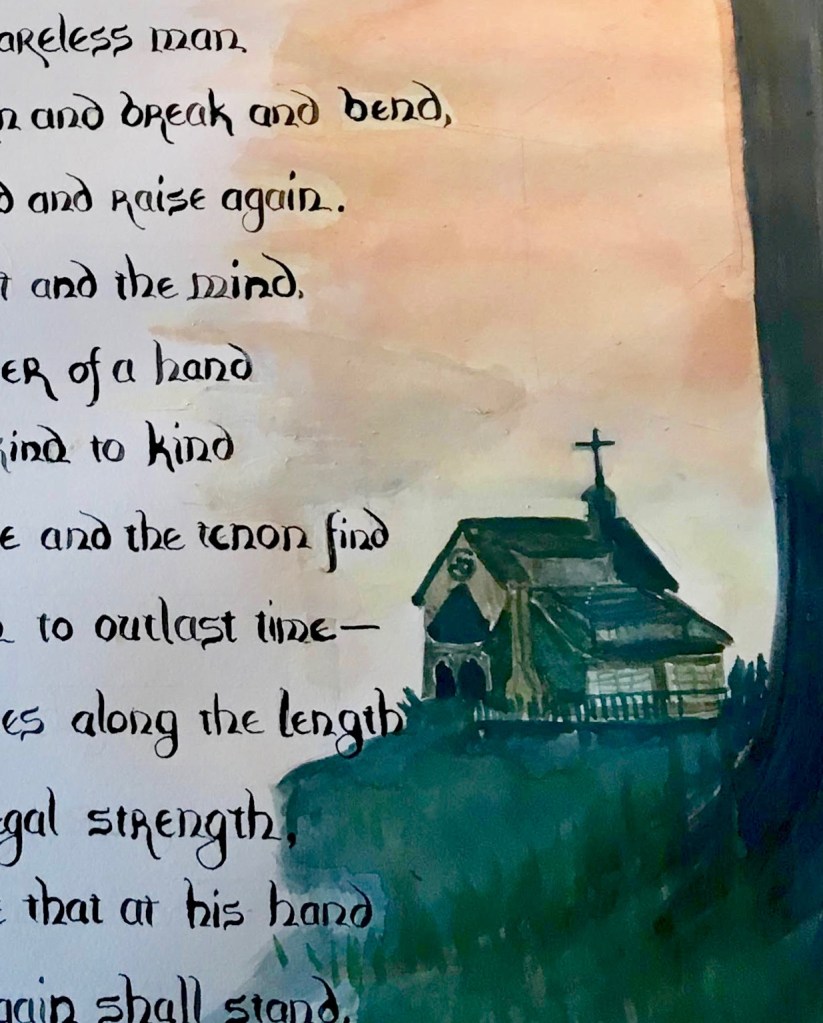 areless man
n and break and bend,
d and raise again.
t and the mind,
er of a hand
kind to kind
e and the tenon find
to outlast time—
es along the length
gal strength,
that at his hand
gain shall stand.